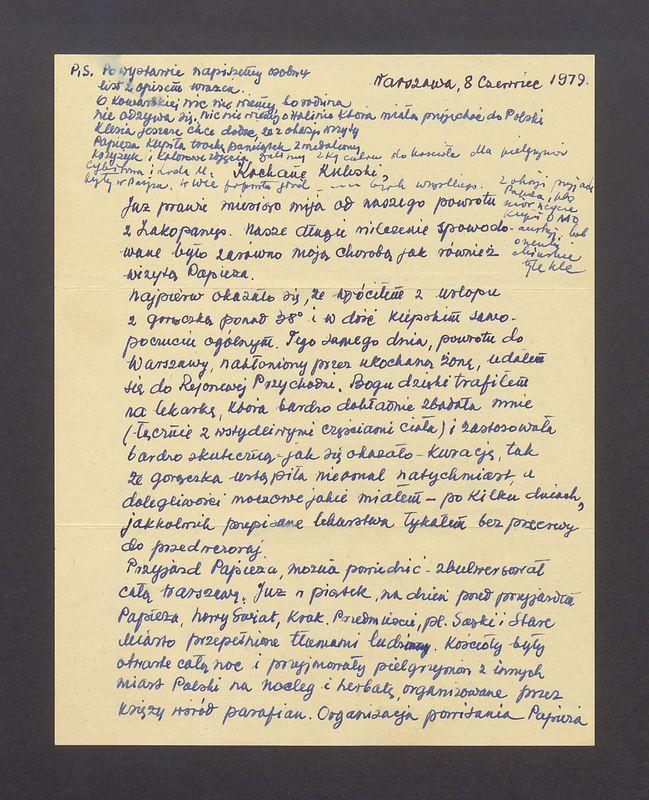 P.S. Po wystawie napiszemy osobny
list z opisem wrażeń.
Warszawa, 8 Czerwiec 1979.
O Kowarskiej nic nie wiemy, bo rodzina
nie odzywa się, nic nie wiemy która miała przyjechać do Polski
Klenia jeszcze chce dodać, że z okazji wizyty
Papieża kupiła trochę pamiątek z medaliony
krzyżyk i kolorowe zdjęcia, cukru do kościoła dla pielgrzymów
Kochane Kuleski,
Z okazji przyjazdu
Papieża
Już prawie miesiąc mija od naszego powrotu
z Zakopanego. Nasze długie milczenie spowodo-
wane było zarówno moją chorobą jak również
wizytą Papieża.
Najpierw okazało się, że wróciłem z urlopu
z gorączką ponad 38° i w dość kiepskim samo-
poczuciu ogólnym. Tego samego dnia, powrotu do
Warszawy, nakłoniony przez ukochaną żonę, udałem
się do Rejonowej Przychodni. Bogu dzięki trafiłem
na lekarkę, która bardzo dokładnie zbadała mnie
(łącznie z wstydliwymi częściami ciała) i zastosowała
bardzo skuteczną - jak się okazało - kurację, tak
że gorączka ustąpiła nieomal natychmiast, a
dolegliwości moczowe jakie miałem - po kilku dniach,
jakkolwiek przepisane lekarstwa łykałem bez przerwy
do przedwczoraj.
Przyjazd Papieża, można powiedzieć - zbulwersował
całą Warszawę. Już w piątek, na dzień przed przyjazdem
Papieża, Nowy Świat, Krak. Przedmieście, pl. Saski i Stare
Miasto przepełnione tłumami ludzi. Kościoły były
otwarte całą noc i przyjmowały pielgrzymów z innych
miast Polski na nocleg i herbatę, organizowane przez
księży wśród parafian. Organizacja powitania Papieża